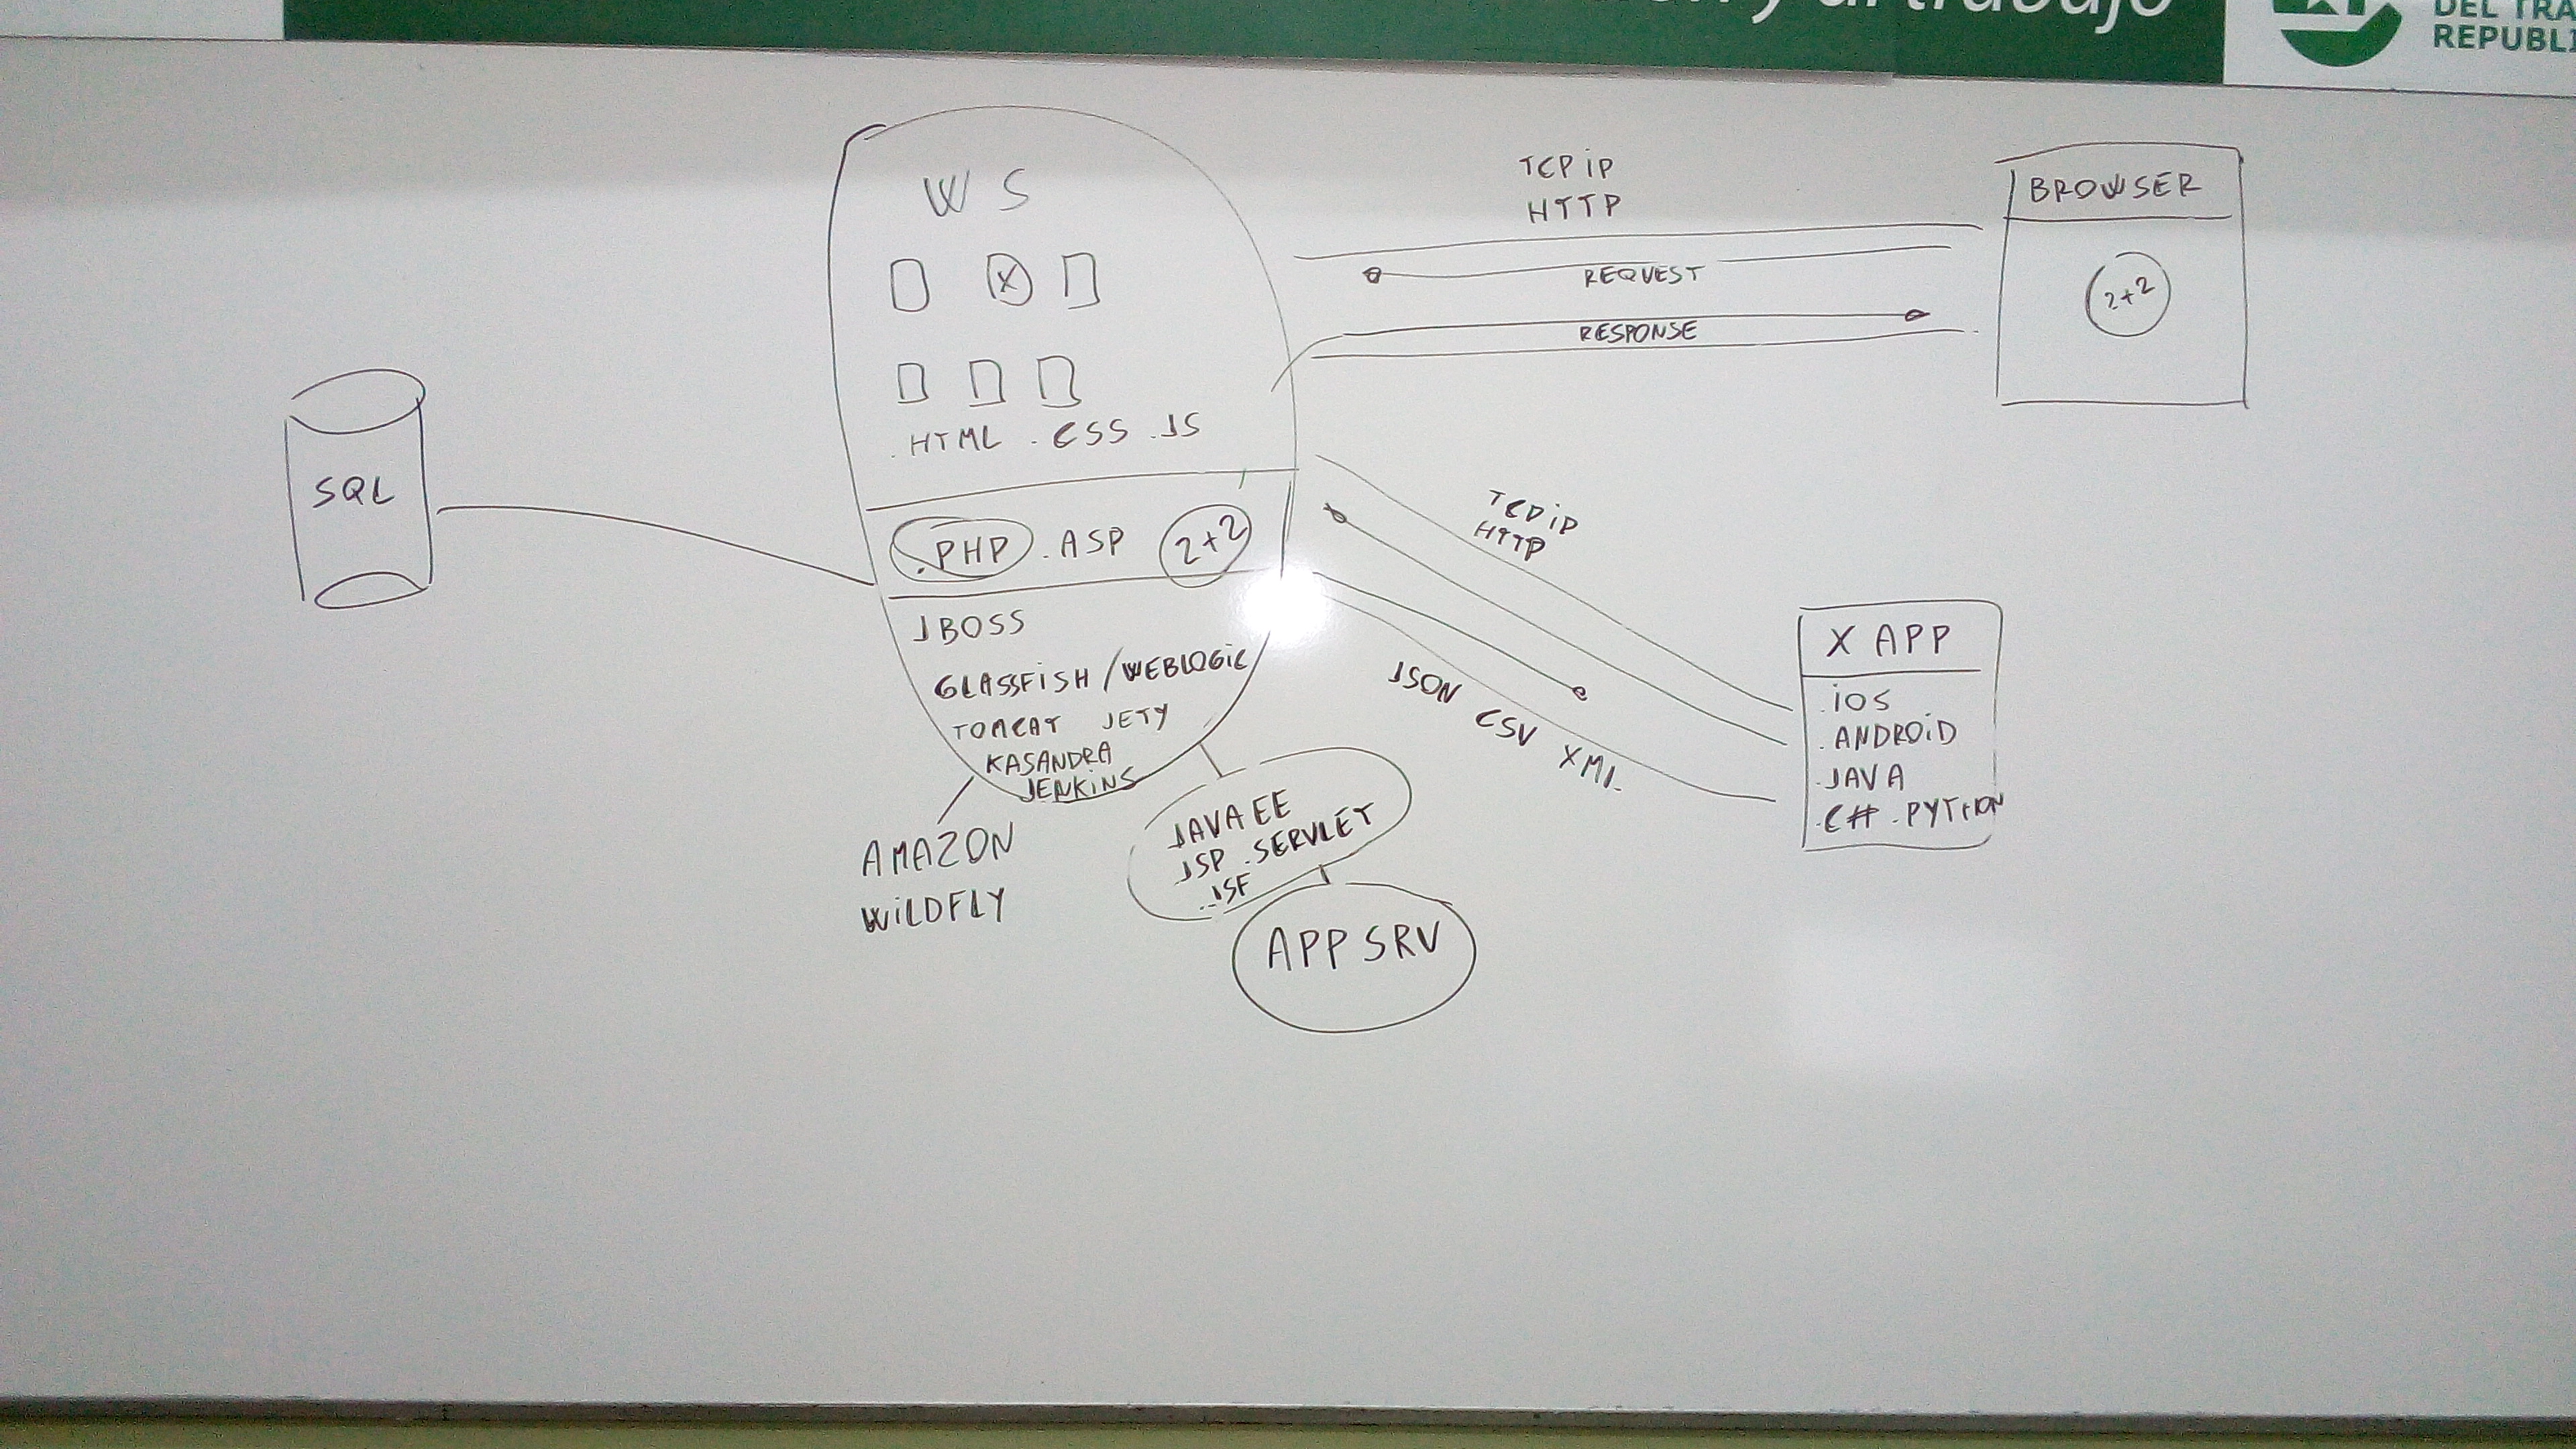 al trabajo
DEL TRA
REPUBLI
W S
.HTML .CSS .JS
.PHP .ASP 2+2
JBOSS
GLASSFISH / WEBLOGIC
TOMCAT JETY
KASANDRA
JENKINS
AMAZON
WILDFLY
JAVA EE
JSP .SERVLET
.JSF
APP SRV
SQL
TCP IP
HTTP
REQUEST
RESPONSE
BROWSER
2+2
TCP IP
HTTP
JSON CSV XML
X APP
.IOS
.ANDROID
.JAVA
.C# .PYTHON
X